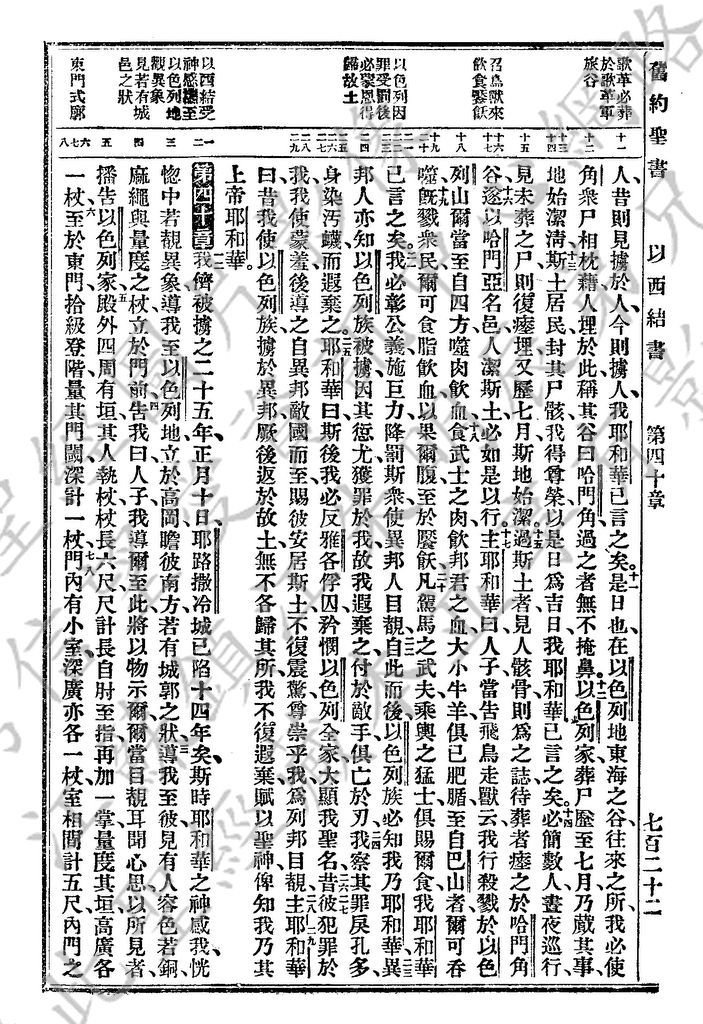 舊約聖書 以西結書 第四十章 七百二十二
歌革必葬
於歌革軍
旅谷
召鳥獸來
飲食饜飫
以色列因
罪受罰後
必蒙恩得
歸故土
以西結受
神感攜至
以色列地
觀異象
見若有城
邑之狀
東門式廓
人昔則見擄於人今則擄人我耶和華已言之矣是日也在以色列地東海之谷往來之所我必使
角衆尸相枕藉人埋於此稱其谷曰哈門角過之者無不掩鼻以色列家葬尸歷至七月乃蕆其事
地始潔淸斯土居民封其尸骸我得尊榮以是日爲吉日我耶和華已言之矣必簡數人晝夜巡行
見未葬之尸則復瘞埋又歷七月斯地始潔過斯土者見人骸骨則爲之誌待葬者瘞之於哈門角
谷遂以哈門亞名邑人潔斯土必如是以行主耶和華曰人子當告飛鳥走獸云我行殺戮於以色
列山爾當至自四方噬肉飲血食武士之肉飲邦君之血大小牛羊俱已肥腯至自巴山者爾可吞
噬旣戮衆民爾可食脂飲血以果爾腹至於饜飫凡駕馬之武夫乘輿之猛士俱賜爾食我耶和華
已言之矣我必彰公義施巨力降罰斯衆使異邦人目覩自此而後以色列族必知我乃耶和華異
邦人亦知以色列族被擄因其愆尤獲罪於我故我遐棄之付於敵手俱亡於刃我察其罪戾孔多
身染汚衊而遐棄之耶和華曰斯後我必反雅各俘囚矜憫以色列全家大顯我聖名昔彼犯罪於
我我使蒙羞後導之自異邦敵國而至賜彼安居斯土不復震驚尊崇乎我爲列邦目覩主耶和華
曰昔我使以色列族擄於異邦厥後返於故土無不各歸其所我不復遐棄賦以聖神俾知我乃其
上帝耶和華
第四十章 我儕被擄之二十五年正月十日耶路撒冷城已陷十四年矣斯時耶和華之神感我恍
惚中若覩異象導我至以色列地立於高岡瞻彼南方若有城郭之狀導我至彼見有人容色若銅
麻繩與量度之杖立於門前告我曰人子我導爾至此將以物示爾爾當目覩耳聞心思以所見者
播告以色列家殿外四周有垣其人執杖杖長六尺尺計長自肘至指再加一掌量度其垣高廣各
一杖至於東門拾級登階量其門閾深計一杖門內有小室深廣亦各一杖室相間計五尺內門之